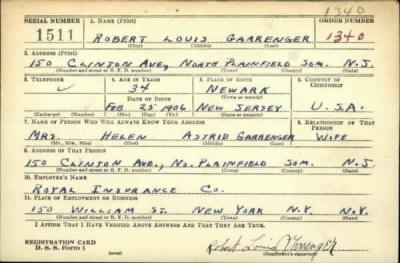 1340
SERIAL NUMBER 1. NAME (Print) ORDER NUMBER
1511 ROBERT LOUIS GARRENGER 1340
(First) (Middle) (Last)
2. ADDRESS (Print)
150 CLINTON AVE, NORTH PLAINFIELD SOM. N.J.
(Number and street or R. F. D. number) (Town) (County) (State)
3. TELEPHONE 4. AGE IN YEARS 5. PLACE OF BIRTH 6. COUNTRY OF CITIZENSHIP
34 NEWARK
DATE OF BIRTH (Town or county)
FEB 25 1906 NEW JERSEY U.S.A.
(Mo.) (Day) (Yr.) (State or country)
7. NAME OF PERSON WHO WILL ALWAYS KNOW YOUR ADDRESS 8. RELATIONSHIP OF THAT PERSON
MRS. HELEN ASTRID GARRENGER WIFE
(Mr., Mrs., Miss) (First) (Middle) (Last)
9. ADDRESS OF THAT PERSON
150 CLINTON AVE., NO. PLAINFIELD SOM. N.J.
(Number and street or R. F. D. number) (Town) (County) (State)
10. EMPLOYER'S NAME
ROYAL INSURANCE CO.
11. PLACE OF EMPLOYMENT OR BUSINESS
150 WILLIAM ST. NEW YORK N.Y. N.Y.
(Number and street or R. F. D. number) (Town) (County) (State)
I AFFIRM THAT I HAVE VERIFIED ABOVE ANSWERS AND THAT THEY ARE TRUE.
REGISTRATION CARD
D. S. S. Form 1 Robert Louis Garrenger
(over) (Registrant's signature)